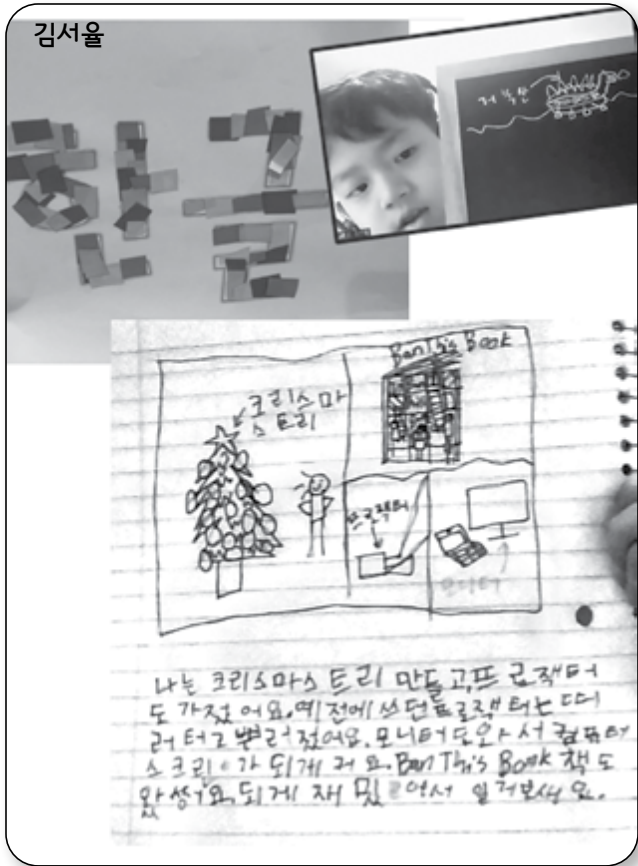 김서율
한글
거북선
Ban This Book
크리스마
스 트리
프로잭터
모니터
나는 크리스마스 트리 만들고, 프로잭터
도 가젔어요. 예전에 쓰던 프로잭터는
터고 젔어요. 모니터도 와서 컴퓨터
스크린이 되게 커요. Ban This Book 책도
왔 되게 재밌 어서